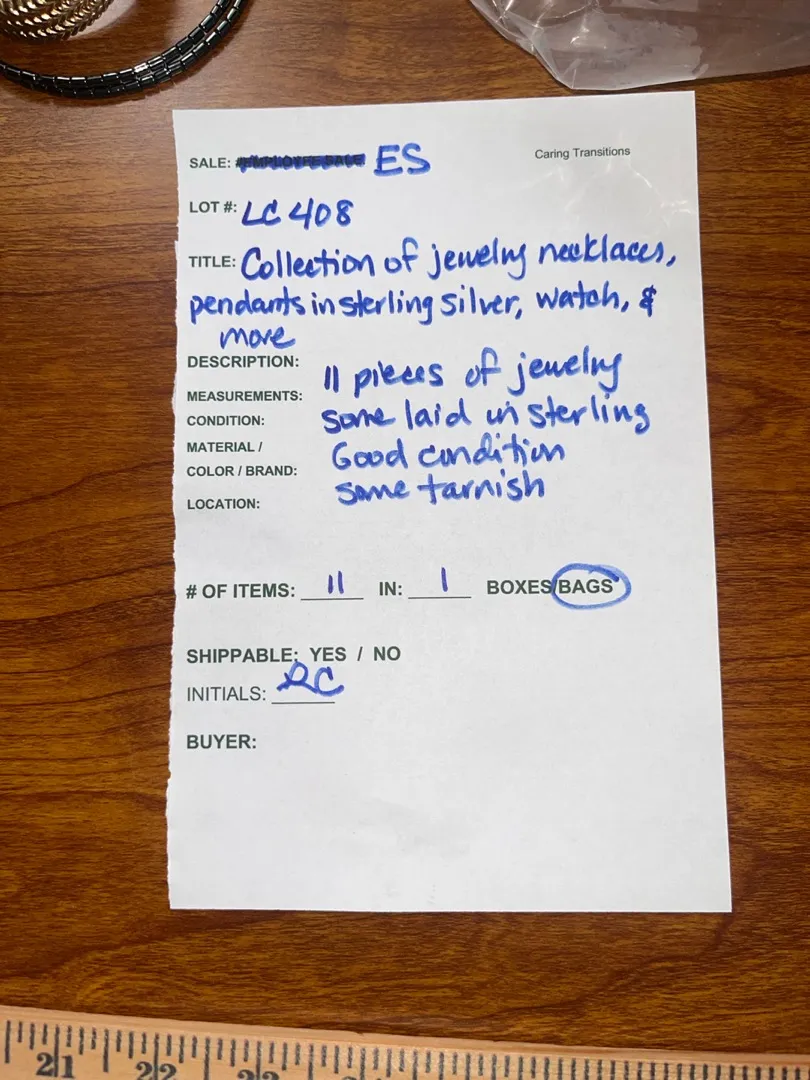 SALE: ES
Caring Transitions
LOT #: LC 408
TITLE: Collection of jewelry necklaces,
pendants in sterling silver, watch, &
more
DESCRIPTION:
11 pieces of jewelry
MEASUREMENTS:
some laid in sterling
CONDITION:
MATERIAL /
Good condition
COLOR / BRAND:
some tarnish
LOCATION:
# OF ITEMS: 11 IN: 1 BOXES/BAGS
SHIPPABLE: YES / NO
INITIALS: RC
BUYER:
21 22 23